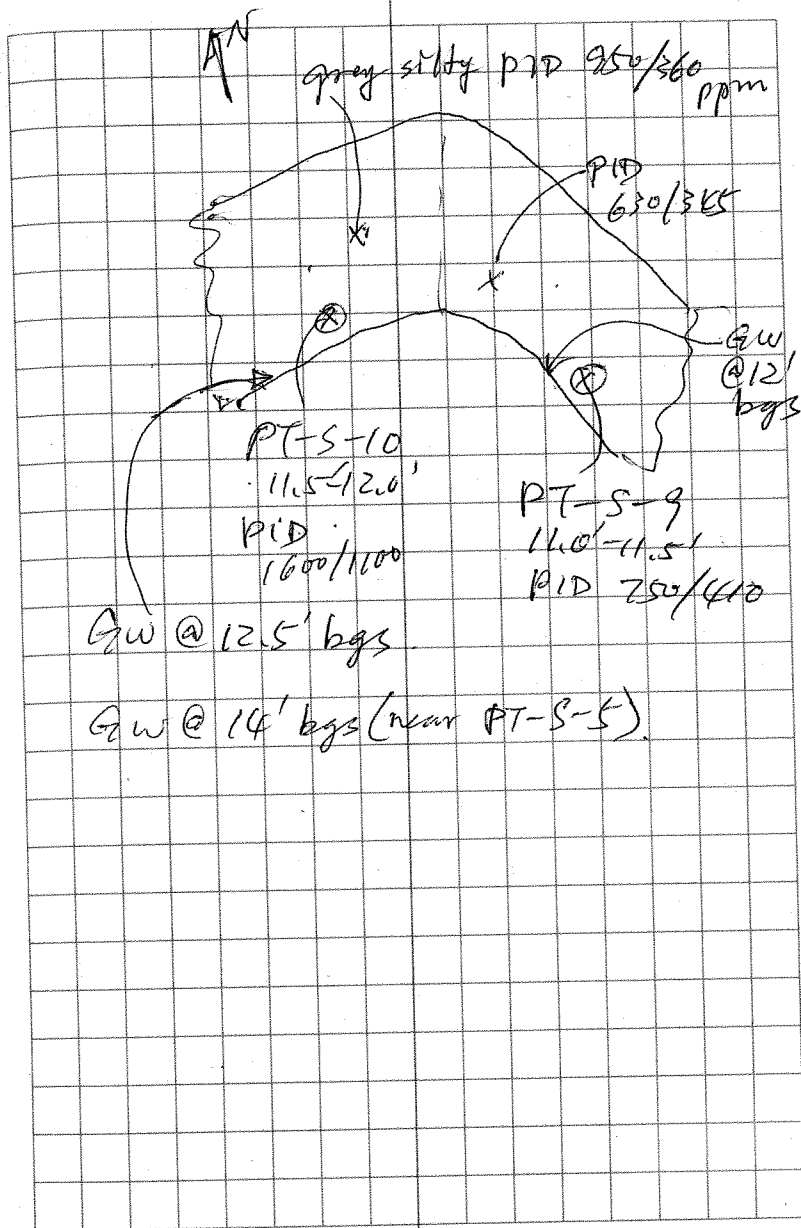 N
grey silty PID 950/360
ppm
PID
630/345
GW
@12'
bgs
PT-S-10
11.5'-12.0'
PID
1600/1100
PT-S-9
11.0'-11.5'
PID 750/410
GW @ 12.5' bgs.
GW @ 14' bgs (near PT-S-5).